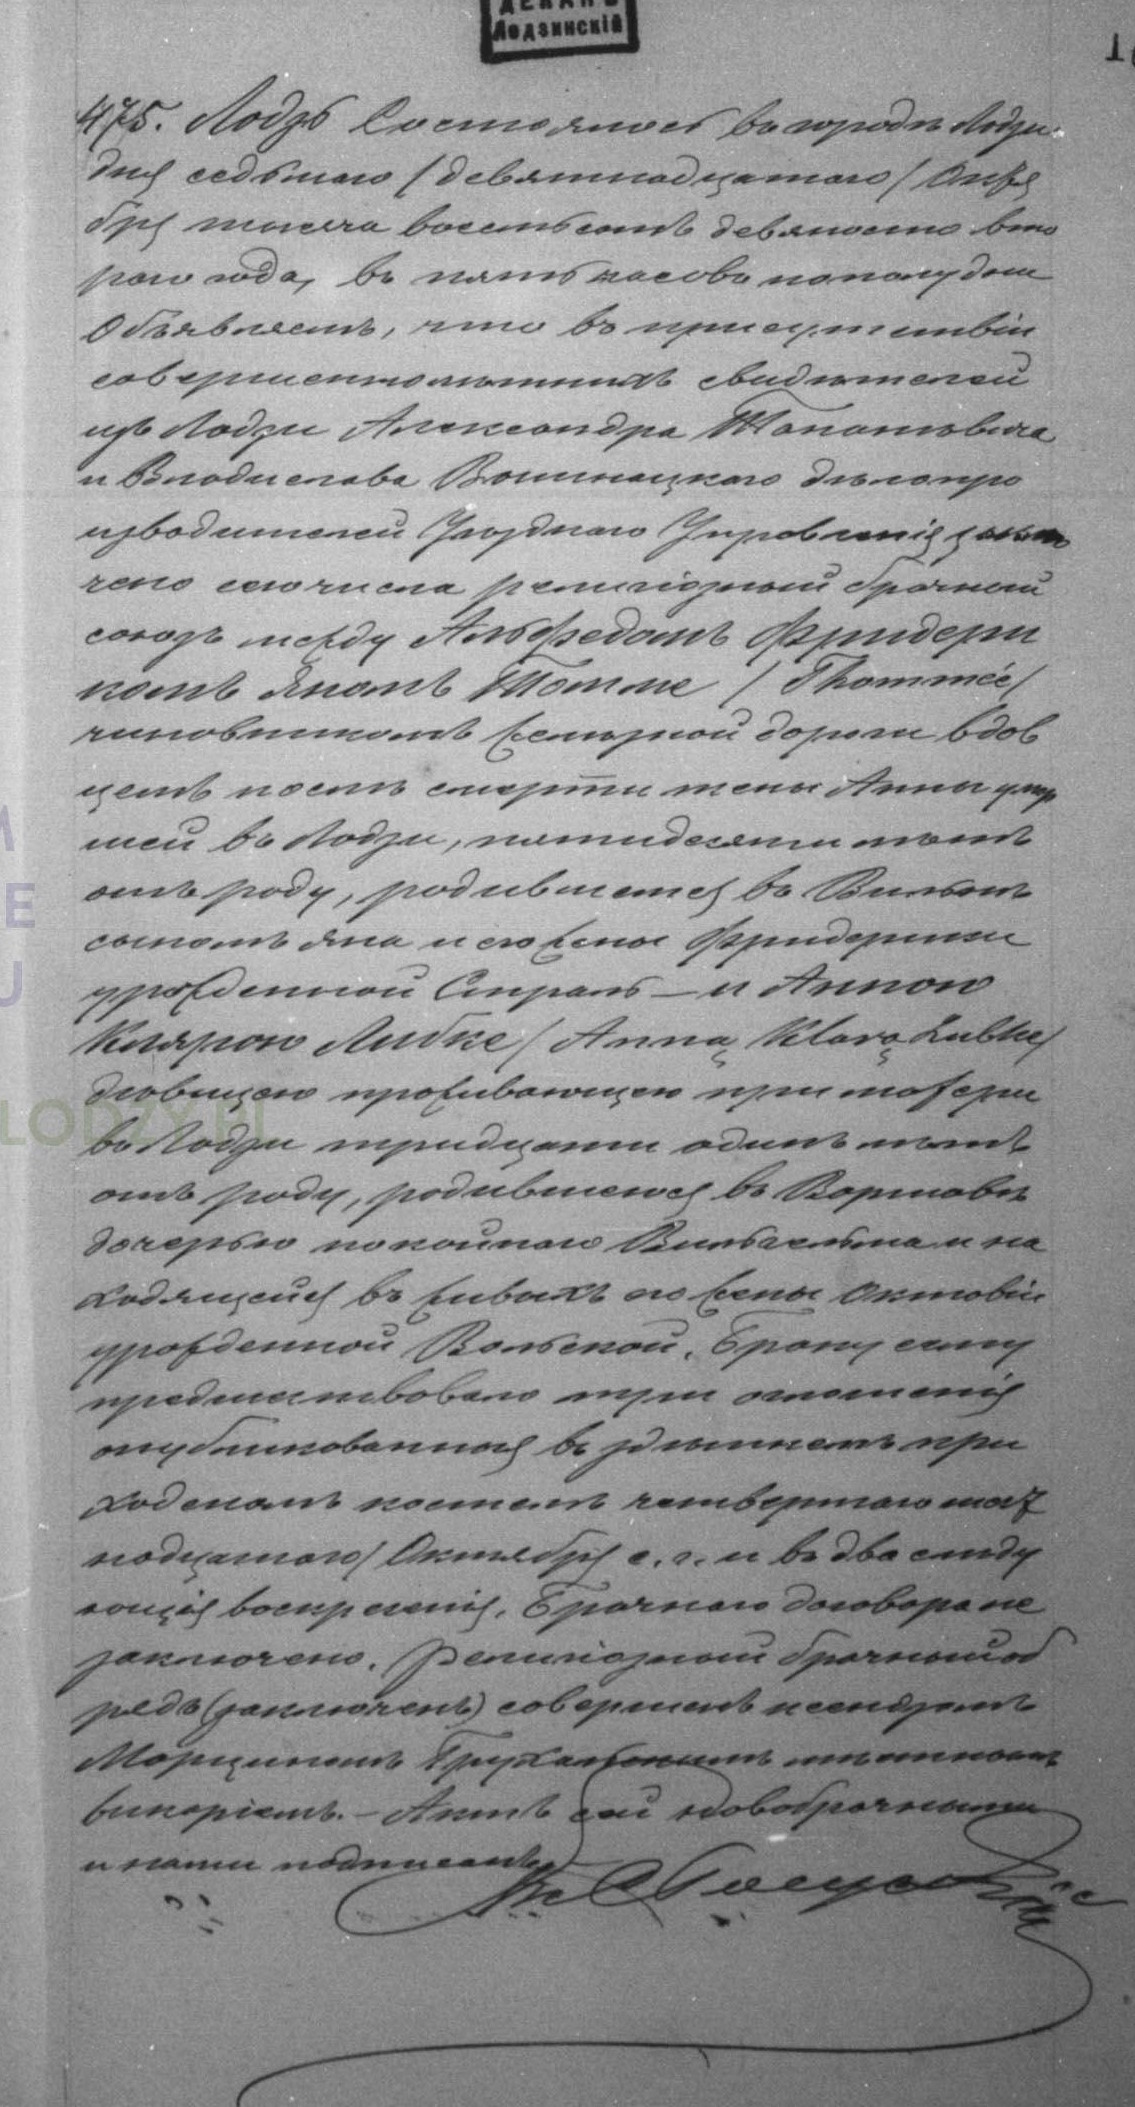 ДЕКАНЪ
Лодзинскій
475. Лодзь Состоялось въ городѣ Лодзи
дня седьмаго /девятнадцатаго/ Октя
бря тысяча восемьсотъ девяносто вто
раго года, въ пять часовъ пополудни
Объявляемъ, что въ присутствіи
совершеннолѣтнихъ свидѣтелей
изъ Лодзи Александра
и Владислава дѣлопро
изводителей Уѣзднаго Управленія заклю
чено сего числа религіозный брачный
союзъ между Альфредомъ Фридери
комъ Яномъ Томме /Thommée/
чиновникомъ желѣзной дороги вдов
цемъ послѣ смерти жены Анны умер
шей въ Лодзи, пятидесяти лѣтъ
отъ роду, родившемся въ Вильнѣ
сыномъ Яна и его жены Фридерики
урожденной Страль — и Анною
Клярою Любке /Anną Klarą Lubke/
дѣвицею проживающею при матери
въ Лодзи тридцати одинъ лѣтъ
отъ роду, родившеюся въ Варшавѣ
дочерью покойнаго Вильгельма и на
ходящейся въ живыхъ его жены Октавіи
урожденной Вольской. Браку сему
предшествовало три оглашенія
опубликованныя въ здѣшнемъ при
ходскомъ костелѣ четвертаго /шест
надцатаго/ Октября с. г. и въ два слѣду
ющія воскресенія. Брачнаго договора не
заключено. Религіозный брачный об
рядъ (заключенъ) совершенъ ксендзомъ
Марциномъ мѣстнымъ
викаріемъ. — Актъ сей новобрачными
и нами подписанъ